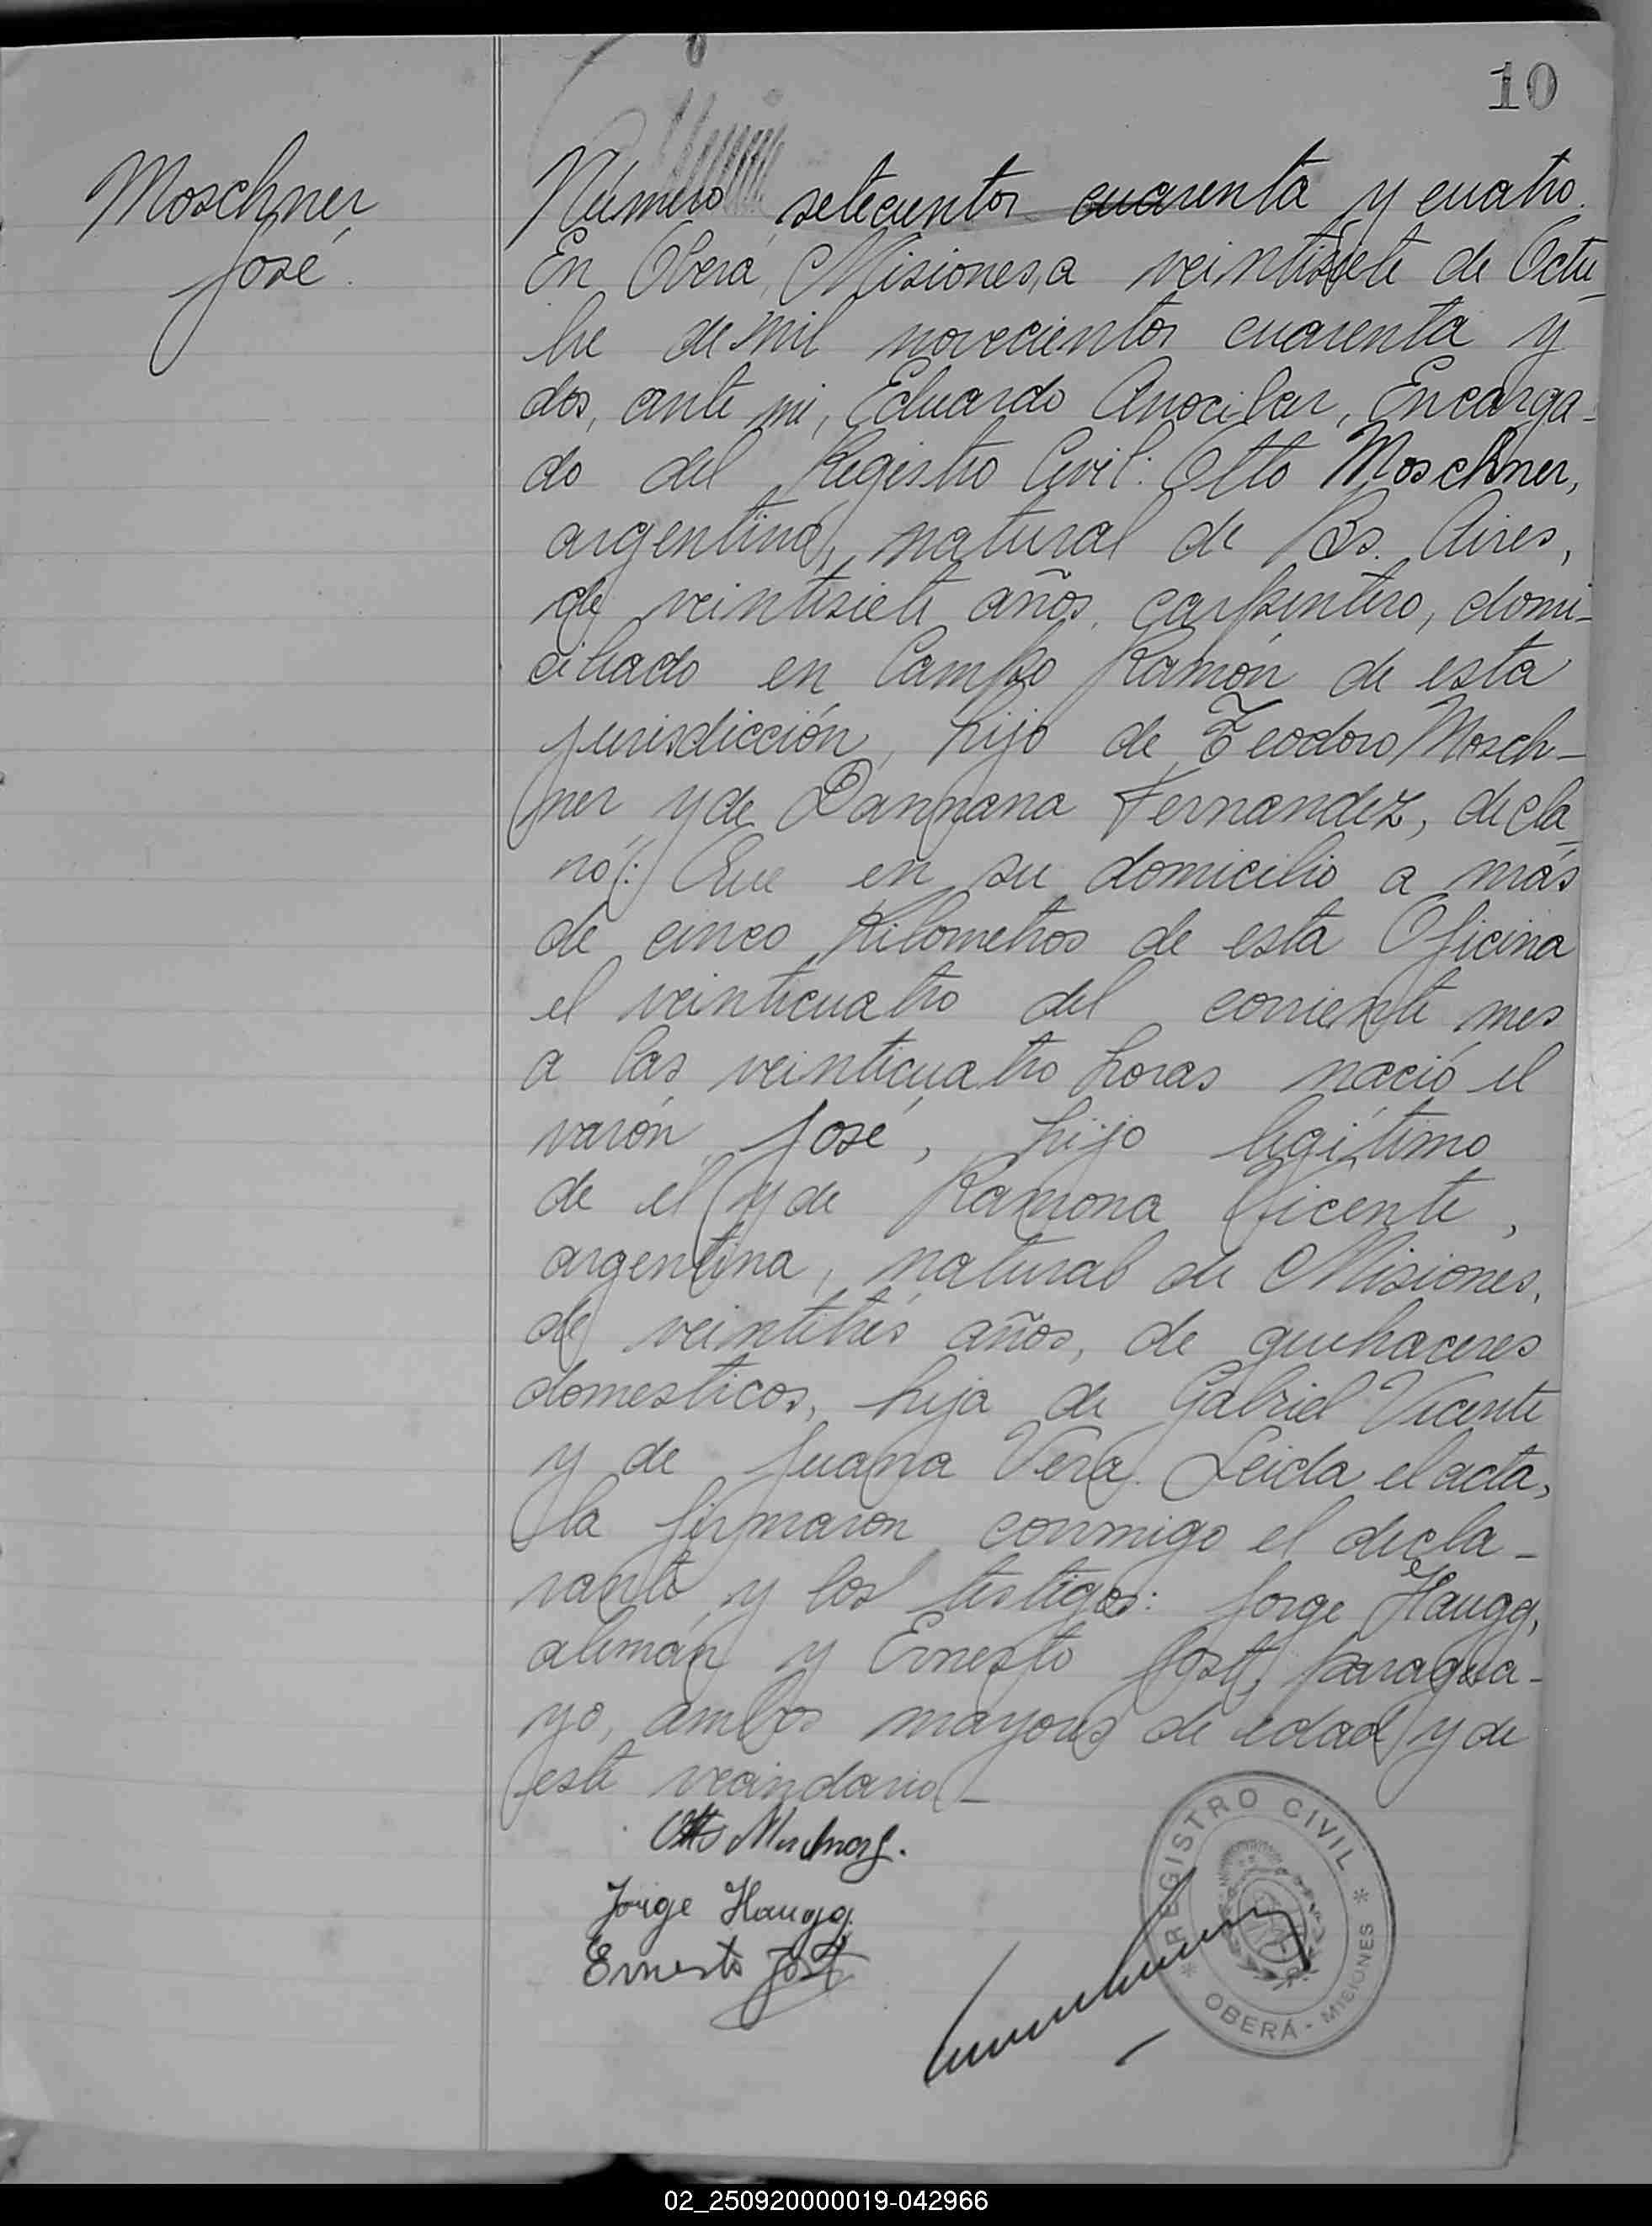 10
Moschner
José.
Número setecientos cuarenta y cuatro.
En Oberá, Misiones, a veintisiete de Octu-
bre de mil novecientos cuarenta y
dos, ante mi, Eduardo Anocibar, Encarga-
do del Registro Civil: Otto Moschner,
argentino, natural de Bs. Aires,
de veintisiete años, carpintero, domi-
ciliado en Campo Ramón de esta
jurisdicción, hijo de Teodoro Mosch-
ner y de Fernandez, decla-
ró: Que en su domicilio a más
de cinco Kilometros de esta Oficina
el veinticuatro del corriente mes
a las veinticuatro horas nació el
varón José, hijo legítimo
de el y de Ramona Vicente,
argentina, natural de Misiones,
de veintitrés años, de quehaceres
domesticos, hija de Gabriel Vicente
y de Juana Vera. Leida el acta,
la firmaron conmigo el decla-
rante y los testigos: Jorge Haugg,
alemán y Ernesto Jost, paragua-
yo, ambos mayores de edad y de
este vecindario -
Otto
Jorge Haugg.
Ernesto Jost
REGISTRO CIVIL
OBERÁ - MISIONES
02_250920000019-042966